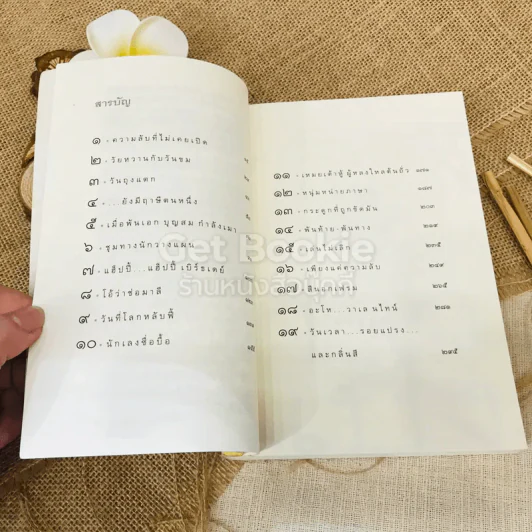 สารบัญ
๑ • ความลับที่ไม่เคยเปิด
๒ • วัยหวานกับวันชม
๓ • วันถุงแตก
๔ • ...ยังมีฤาษีตนหนึ่ง
๕ • เมื่อพันเอก บุญสม กำลังเมา
๖ • ชุมทางนักวางแผน
๗ • แฮ็ปปี้...แฮ็ปปี้ เบิร์ธเดย์
๘ • โอ้ว่าช่อมาลี
๙ • วันที่โลกหลับพี้
๑๐ • นักเลงชื่อบื้อ
๑๑ • เหมยเค้าฟู่ ผู้หลงใหลต้นถั่ว
๑๒ • หนุ่มหน่ายภาษา
๑๓ • กระดูกที่ถูกขัดมัน
๑๔ • พันท้าย-พันทาง
๑๕ • เล่นไม่เลิก ๒๓๕
๑๖ • เพียงแค่ความลับ ๒๔๙
๑๗ ๒๖๕
๑๘ • อะโห...วาเลนไทน์ ๒๘๑
๑๙ • วันเวลา...รอยแปรง
และกลิ่นสี ๒๙๕
Get Bookie
ร้านหนังสือคุ้กกี้